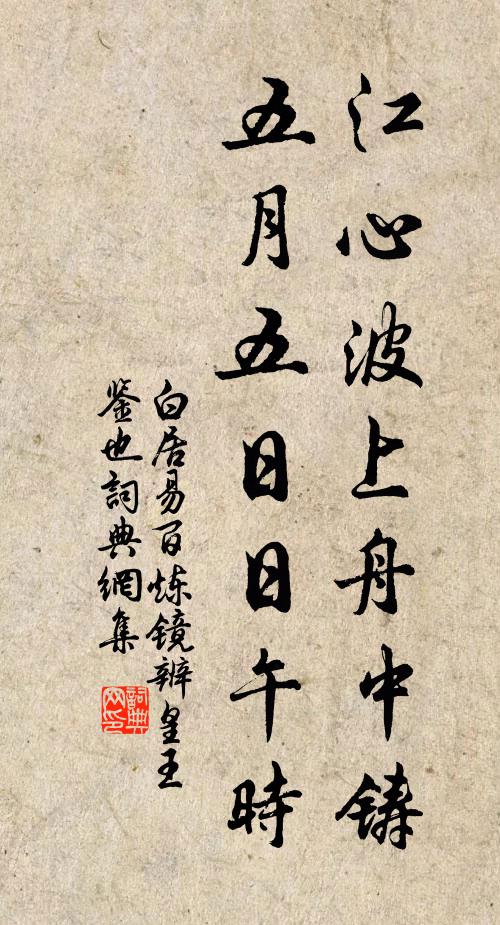 江心波上舟中铸
五月五日日午時
白居易百炼镜辨皇王
鉴也詞典網集
詞典
网印